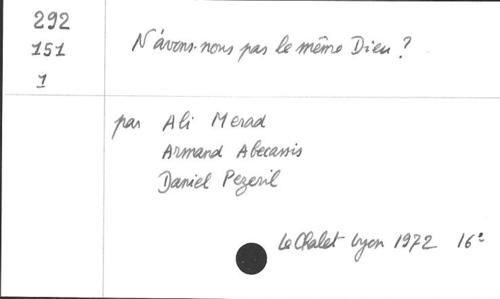 292
151
1
N'avons-nous pas le même Dieu ?
par Ali Merad
Armand Abecassis
Daniel Pezeril
Le Chalet Lyon 1972 16e